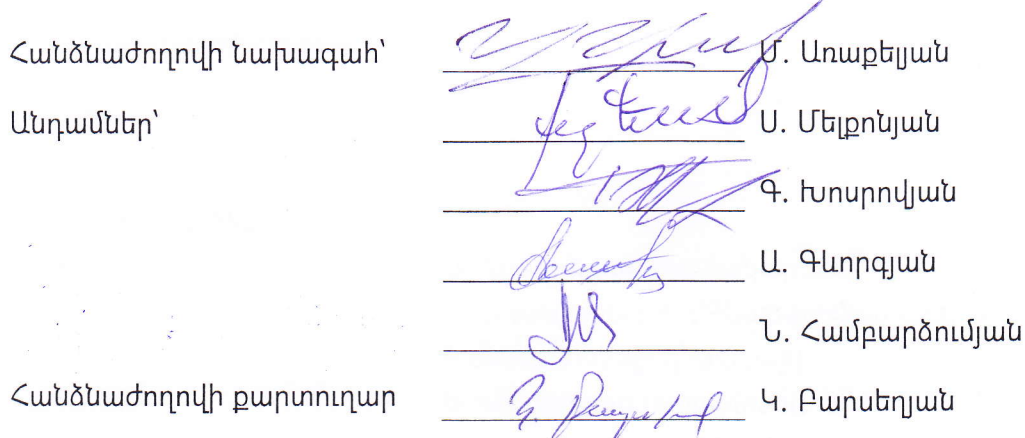 Հանձնաժողովի նախագահ՝ Մ. Առաքելյան
Անդամներ՝ Ս. Մելքոնյան
Գ. Խոսրովյան
Ա. Գևորգյան
Ն. Համբարձումյան
Հանձնաժողովի քարտուղար Կ. Բարսեղյան